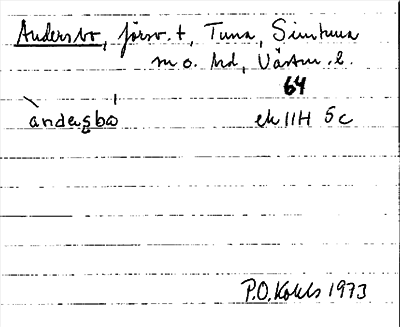 Andersbo, försv. t, Tuna, Simtuna
m o. hd, Västm. l.
64
andas̩bo
ek 11H 5c
P.O. Kohls 1973